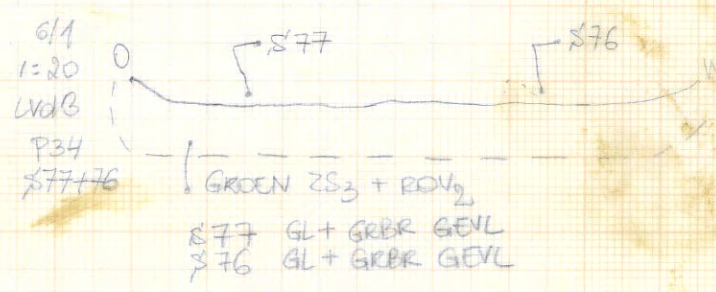 6/1
1=20
LVdB
P34
S77+76
O
S77
S76
W
GROEN ZS3 + ROV2
S77 GL + GRBR GEVL
S76 GL + GRBR GEVL